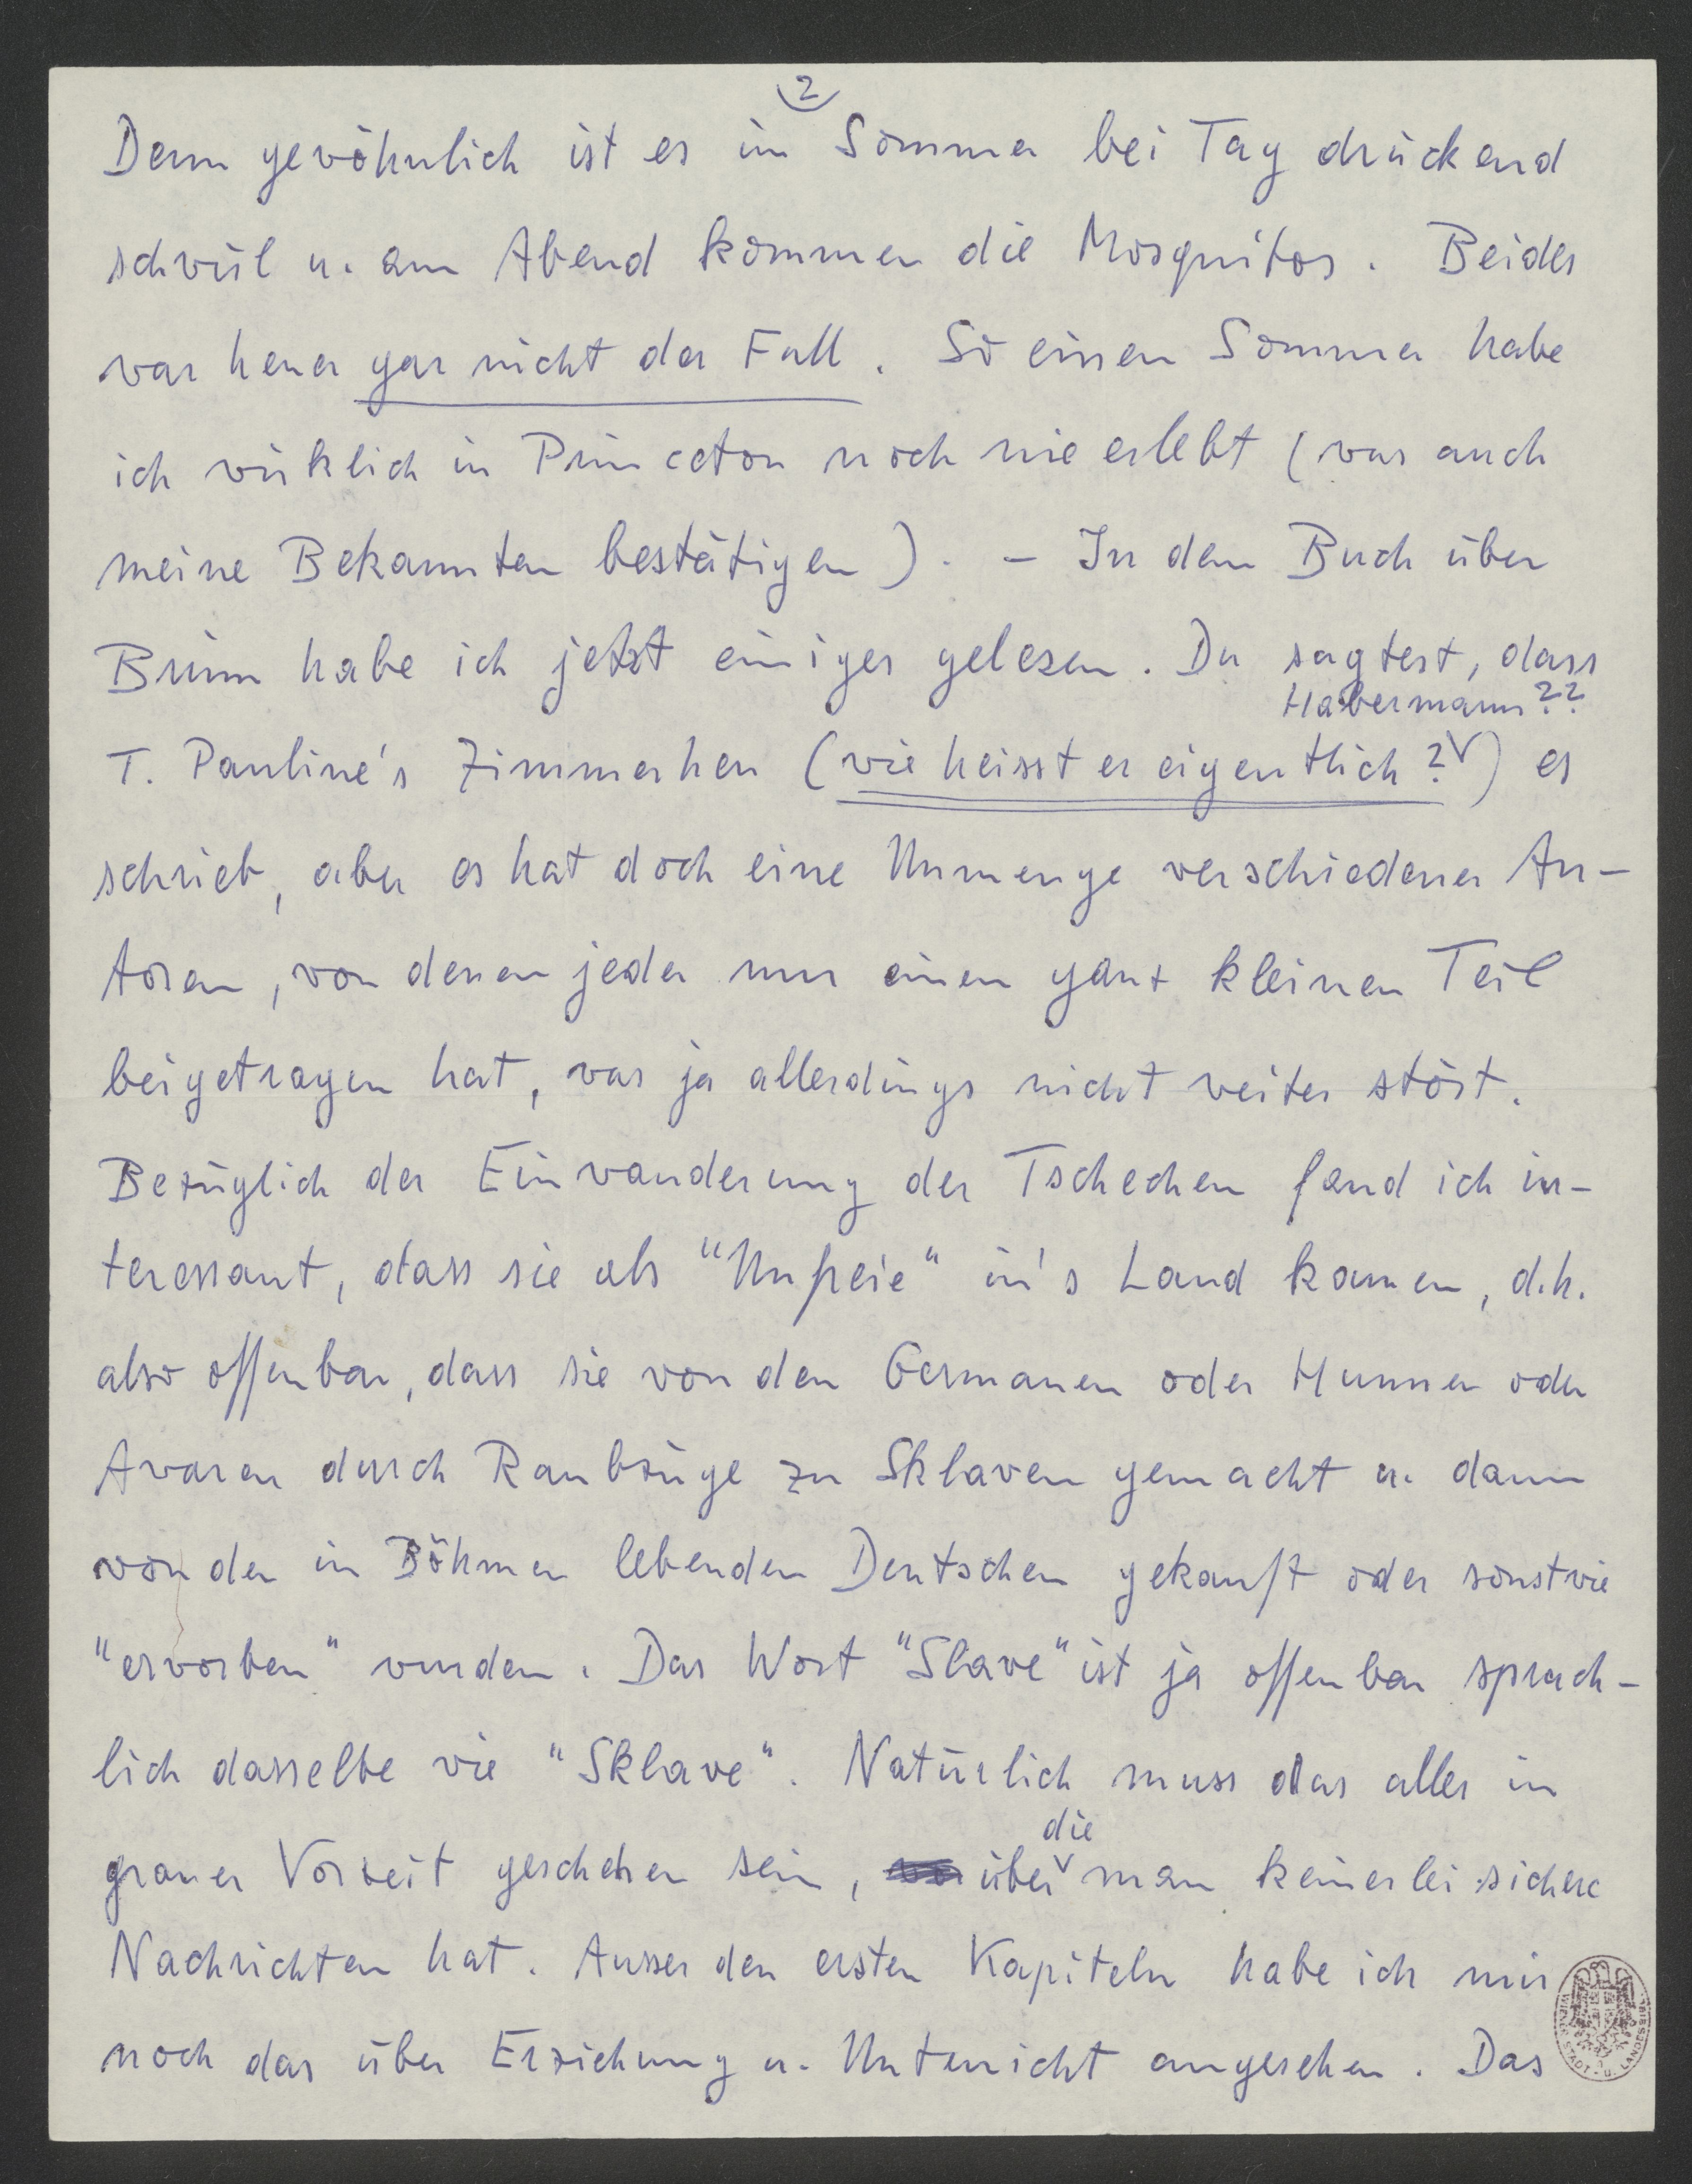 2
Denn gewöhnlich ist es im Sommer bei Tag drückend
schwül u. am Abend kommen die Mosquitos. Beides
war heuer gar nicht der Fall. So einen Sommer habe
ich wirklich in Princeton noch nie erlebt (was auch
meine Bekannten bestätigen). – In dem Buch über
Brünn habe ich jetzt einiges gelesen. Du sagtest, dass
Habermann??
T. Pauline's Zimmerherr (wie heisst er eigentlich?) es
schrieb, aber es hat doch eine Unmenge verschiedener Au-
toren, von denen jeder nur einen ganz kleinen Teil
beigetragen hat, was ja allerdings nicht weiter stört.
Bezüglich der Einwanderung der Tschechen fand ich in-
teressant, dass sie als "Unfreie" in's Land kamen, d.h.
also offenbar, dass sie von den Germanen oder Hunnen oder
Avaren durch Raubzüge zu Sklaven gemacht u. dann
von den in Böhmen lebenden Deutschen gekauft oder sonstwie
"erworben" wurden. Das Wort "Slave" ist ja offenbar sprach-
lich dasselbe wie "Sklave". Natürlich muss das alles in
die
grauer Vorzeit geschehen sein, über man keinerlei sichere
Nachrichten hat. Ausser den ersten Kapiteln habe ich mir
noch das über Erziehung u. Unterricht angesehen. Das